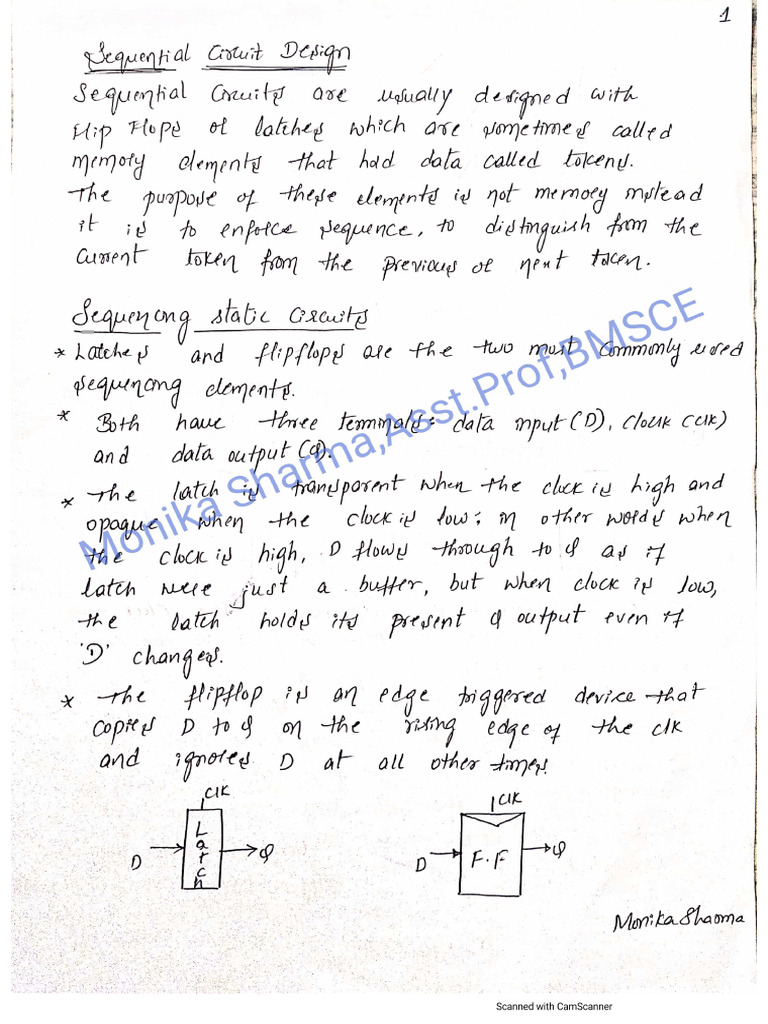 1
Sequential Circuit Design
Sequential Circuits are usually designed with
Flip Flops or latches which are sometimes called
memory elements that had data called tokens.
The purpose of these elements is not memory instead
it is to enforce sequence, to distinguish from the
current token from the previous or next token.
Sequencing static Circuits
* Latches and flipflops are the two most commonly used
sequencing elements.
* Both have three terminals: data input (D), Clock (CLK)
and data output (Q).
* The latch is transparent when the clock is high and
opaque when the clock is low; in other words when
the clock is high, D flows through to Q as if
latch were just a buffer, but when clock is low,
the latch holds its present Q output even if
'D' changes.
* The flipflop is an edge triggered device that
copies D to Q on the rising edge of the clk
and ignores D at all other times.
Clk
Latch
D
Q
Clk
F.F
D
Q
Monika Sharma
Monika Sharma,Asst.Prof,BMSCE
Scanned with CamScanner